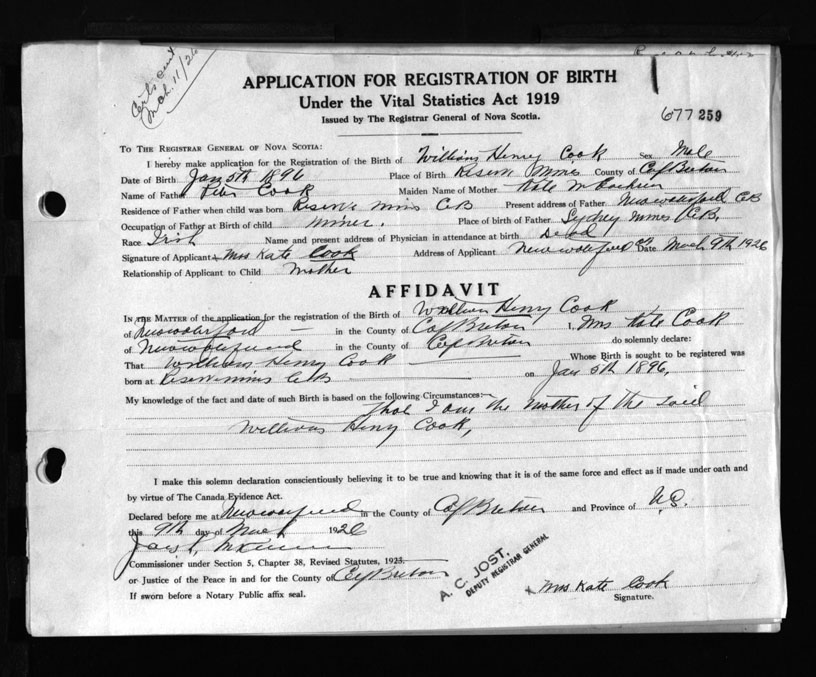 Cert. sent
Mch. 11/26
APPLICATION FOR REGISTRATION OF BIRTH
Under the Vital Statistics Act 1919
Issued by The Registrar General of Nova Scotia.
677259
TO THE REGISTRAR GENERAL OF NOVA SCOTIA:
I hereby make application for the Registration of the Birth of William Henry Cook Sex Male
Date of Birth Jan 5th 1896 Place of Birth Reserve Mines County of Cap Breton
Name of Father Peter Cook Maiden Name of Mother Kate
Residence of Father when child was born Reserve Mines CB Present address of Father New Waterford CB
Occupation of Father at Birth of child miner. Place of birth of Father Sydney mines C.B.
Race Irish Name and present address of Physician in attendance at birth Dead
Signature of Applicant x Mrs Kate Cook Address of Applicant New Waterford CB Date March 9th 1926
Relationship of Applicant to Child Mother
AFFIDAVIT
IN THE MATTER of the application for the registration of the Birth of William Henry Cook
of New Waterford in the County of Cap Breton I, Mrs Kate Cook
of New Waterford in the County of Cap Breton do solemnly declare:
That William Henry Cook Whose Birth is sought to be registered was
born at Reserve mines CB on Jan 5th 1896,
My knowledge of the fact and date of such Birth is based on the following Circumstances:—
That I am the Mother of the said
William Henry Cook,
I make this solemn declaration conscientiously believing it to be true and knowing that it is of the same force and effect as if made under oath and
by virtue of The Canada Evidence Act.
Declared before me at New Waterford in the County of Cap Breton and Province of N.S.
this 9th day of March 1926
Commissioner under Section 5, Chapter 38, Revised Statutes, 1923.
or Justice of the Peace in and for the County of Cap Breton
If sworn before a Notary Public affix seal.
A. C. JOST,
DEPUTY REGISTRAR GENERAL
x Mrs Kate Cook
Signature.